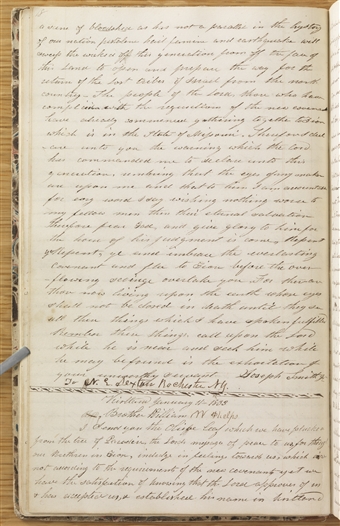 a scene of bloodshed as has not a parallel in the hystory
of our nation pestilence hail famine and earthquake will
sweep the wicked off this generation from off the face of
this Land to open and prepare the way for the
return of the lost tribes of Israel from the north
country. The people of the Lord, those who have
complied with the requisitions of the new covenant
have already commenced gathering together to Zion
which is in the State of Missouri. Therefore I declare
unto you the warning which the Lord
has commanded me to declare unto this
generation, remembring that the eyes of my maker
are upon me and that to him I am accountable
for evry word I say wishing nothing worse to
my fellow men then their eternal salvation
therefore fear God, and give glory to him for
the hour of his judgment is come, Repent
ye Repent, ye and imbrace the everlasting
covenant and flee to Zion before the over
flowing scourge overtake you, For there are
those now living upon the earth whose eyes
shall not be closed in death until they see
all these things which I have spoken fulfilled
Remember these things, call upon the Lord
while he is near and seek him while
he may be found is the exhortation of
your unworthy servant Joseph Smith Jr
To N. E. Rochester N.Y.
Kirtland January 1833
Brother William W Phelps
I send you the Olive leaf which we have plucked
from the tree of Paradise, the Lords message of peace to us, for though
our Brethren in Zion, indulge in feelings towards us, which are
not according to the requirements of the new covenant yet we
have the satisfaction of knowing that the Lord approves of us
& has accepted us, & established his name in Kirtland